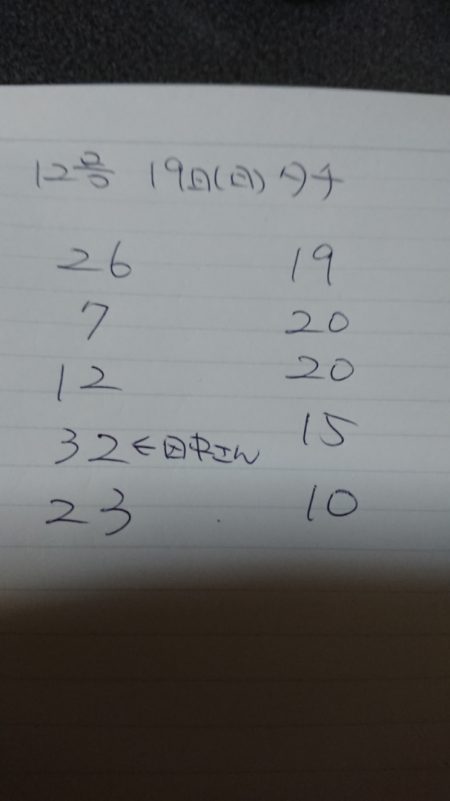 12号 19日(日) 夕チ
26 19
7 20
12 20
32←田中さん 15
23 10